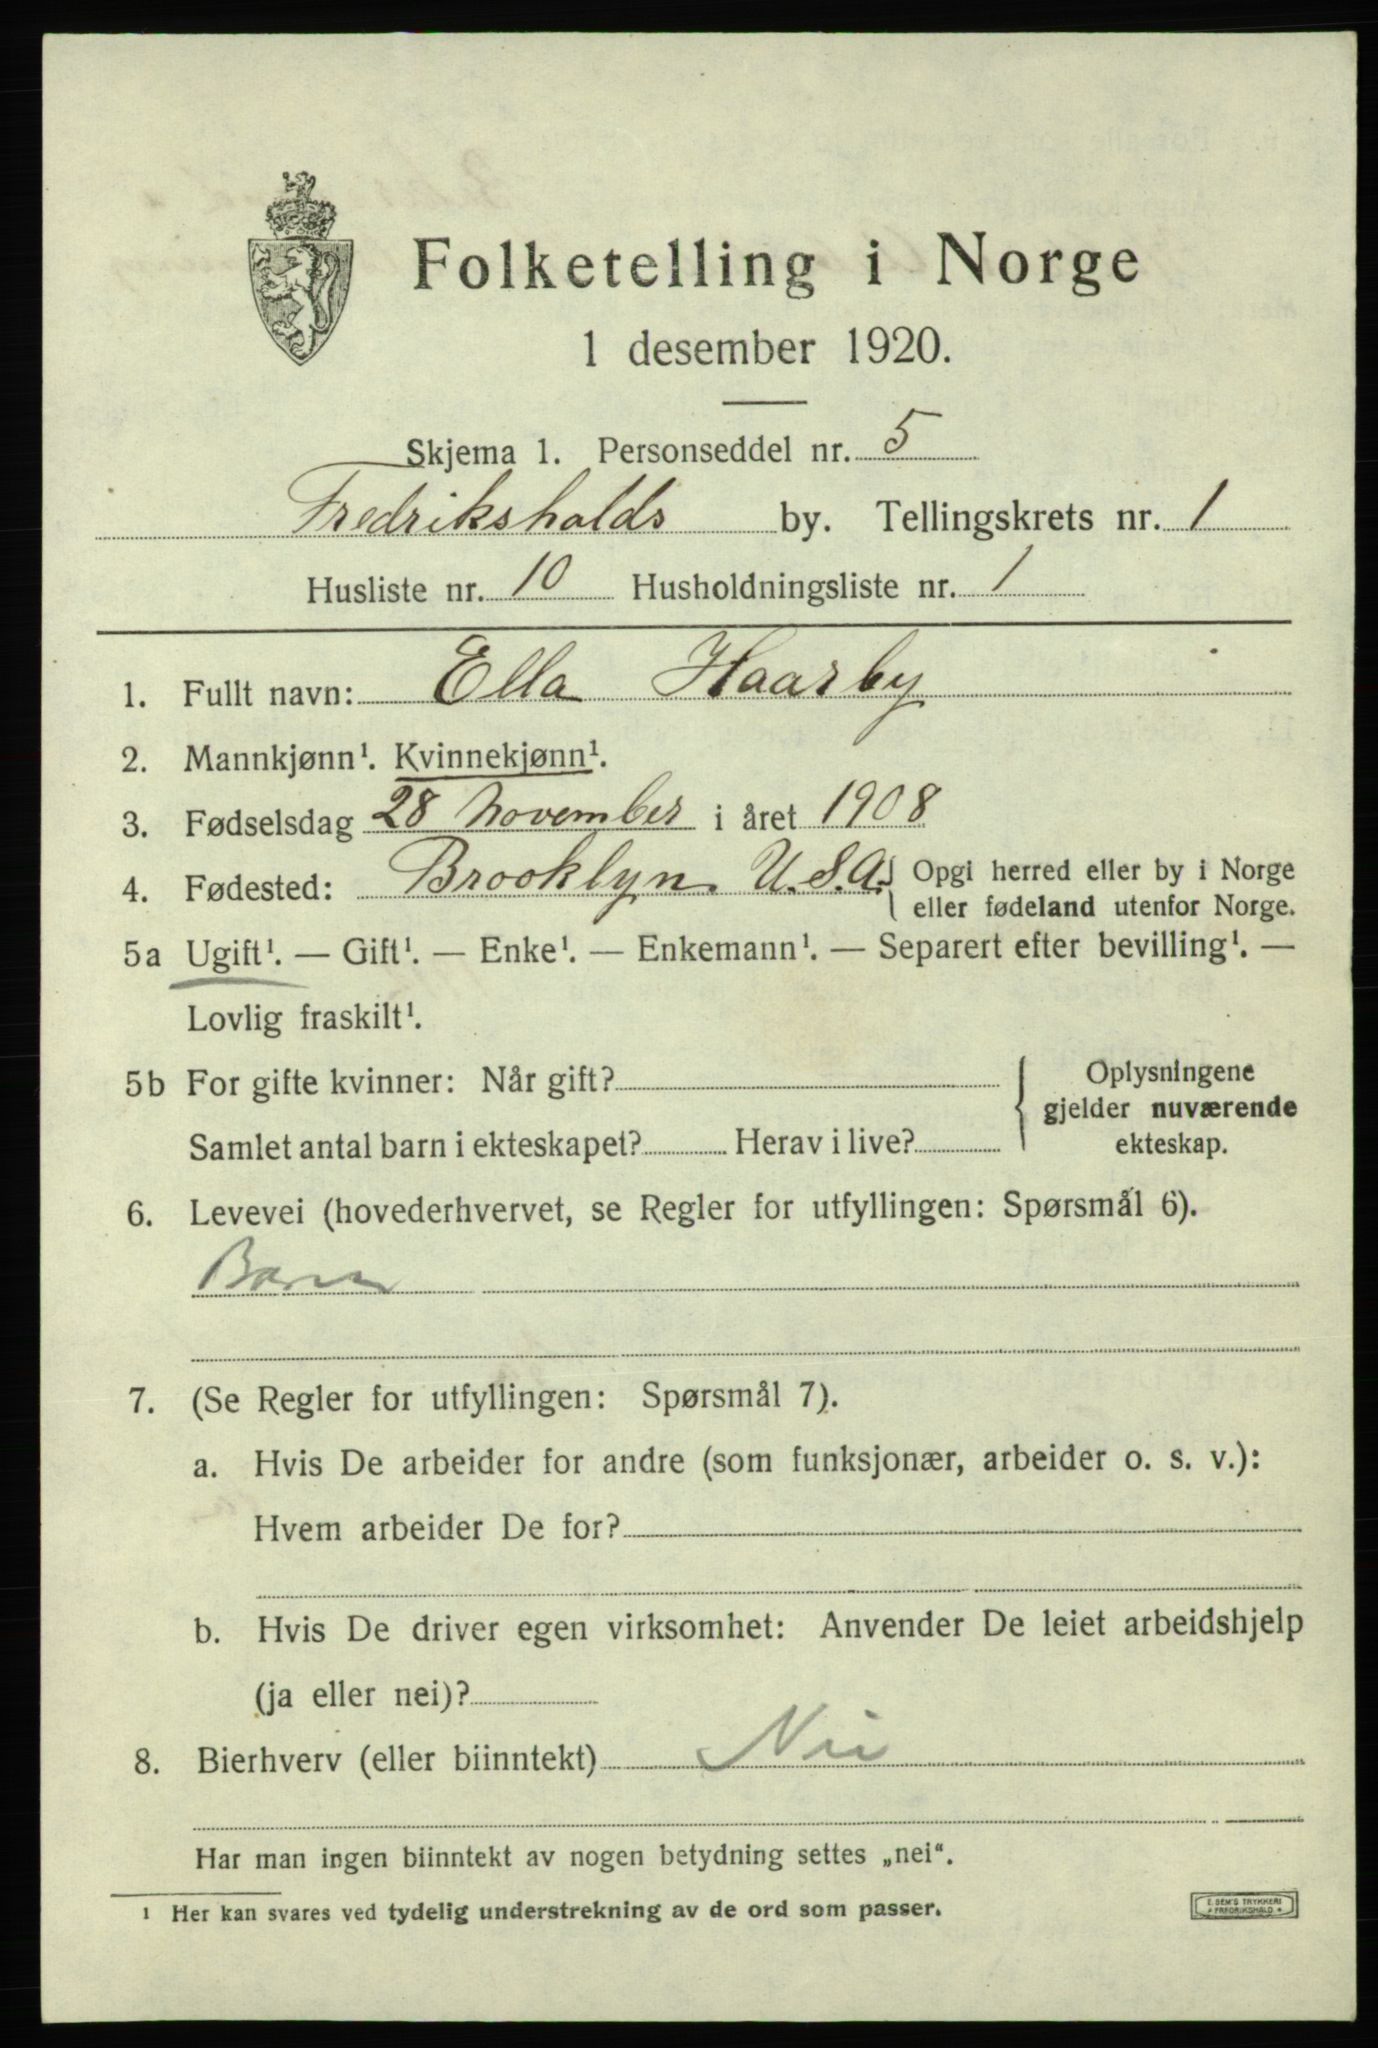 Folketelling i Norge
1 desember 1920.
Skjema 1. Personseddel nr. 5
Fredrikshalds by. Tellingskrets nr. 1
Husliste nr. 10 Husholdningsliste nr. 1
1. Fullt navn: Ella Haarby
2. Mannkjønn¹. Kvinnekjønn¹.
3. Fødselsdag 28 November i året 1908
4. Fødested: Brooklyn. U.S.A. { Opgi herred eller by i Norge
eller fødeland utenfor Norge.
5a Ugift¹. — Gift¹. — Enke¹. — Enkemann¹. — Separert efter bevilling¹. —
Lovlig fraskilt¹.
5b For gifte kvinner: Når gift?
Samlet antal barn i ekteskapet? Herav i live?
{ Oplysningene
gjelder nuværende
ekteskap.
6. Levevei (hovederhvervet, se Regler for utfyllingen: Spørsmål 6).
Barn
7. (Se Regler for utfyllingen: Spørsmål 7).
a. Hvis De arbeider for andre (som funksjonær, arbeider o. s. v.):
Hvem arbeider De for?
b. Hvis De driver egen virksomhet: Anvender De leiet arbeidshjelp
(ja eller nei)?
8. Bierhverv (eller biinntekt) Nei
Har man ingen biinntekt av nogen betydning settes „nei“.
¹ Her kan svares ved tydelig understrekning av de ord som passer.
E. SEM'S TRYKKERI
FREDRIKSHALD